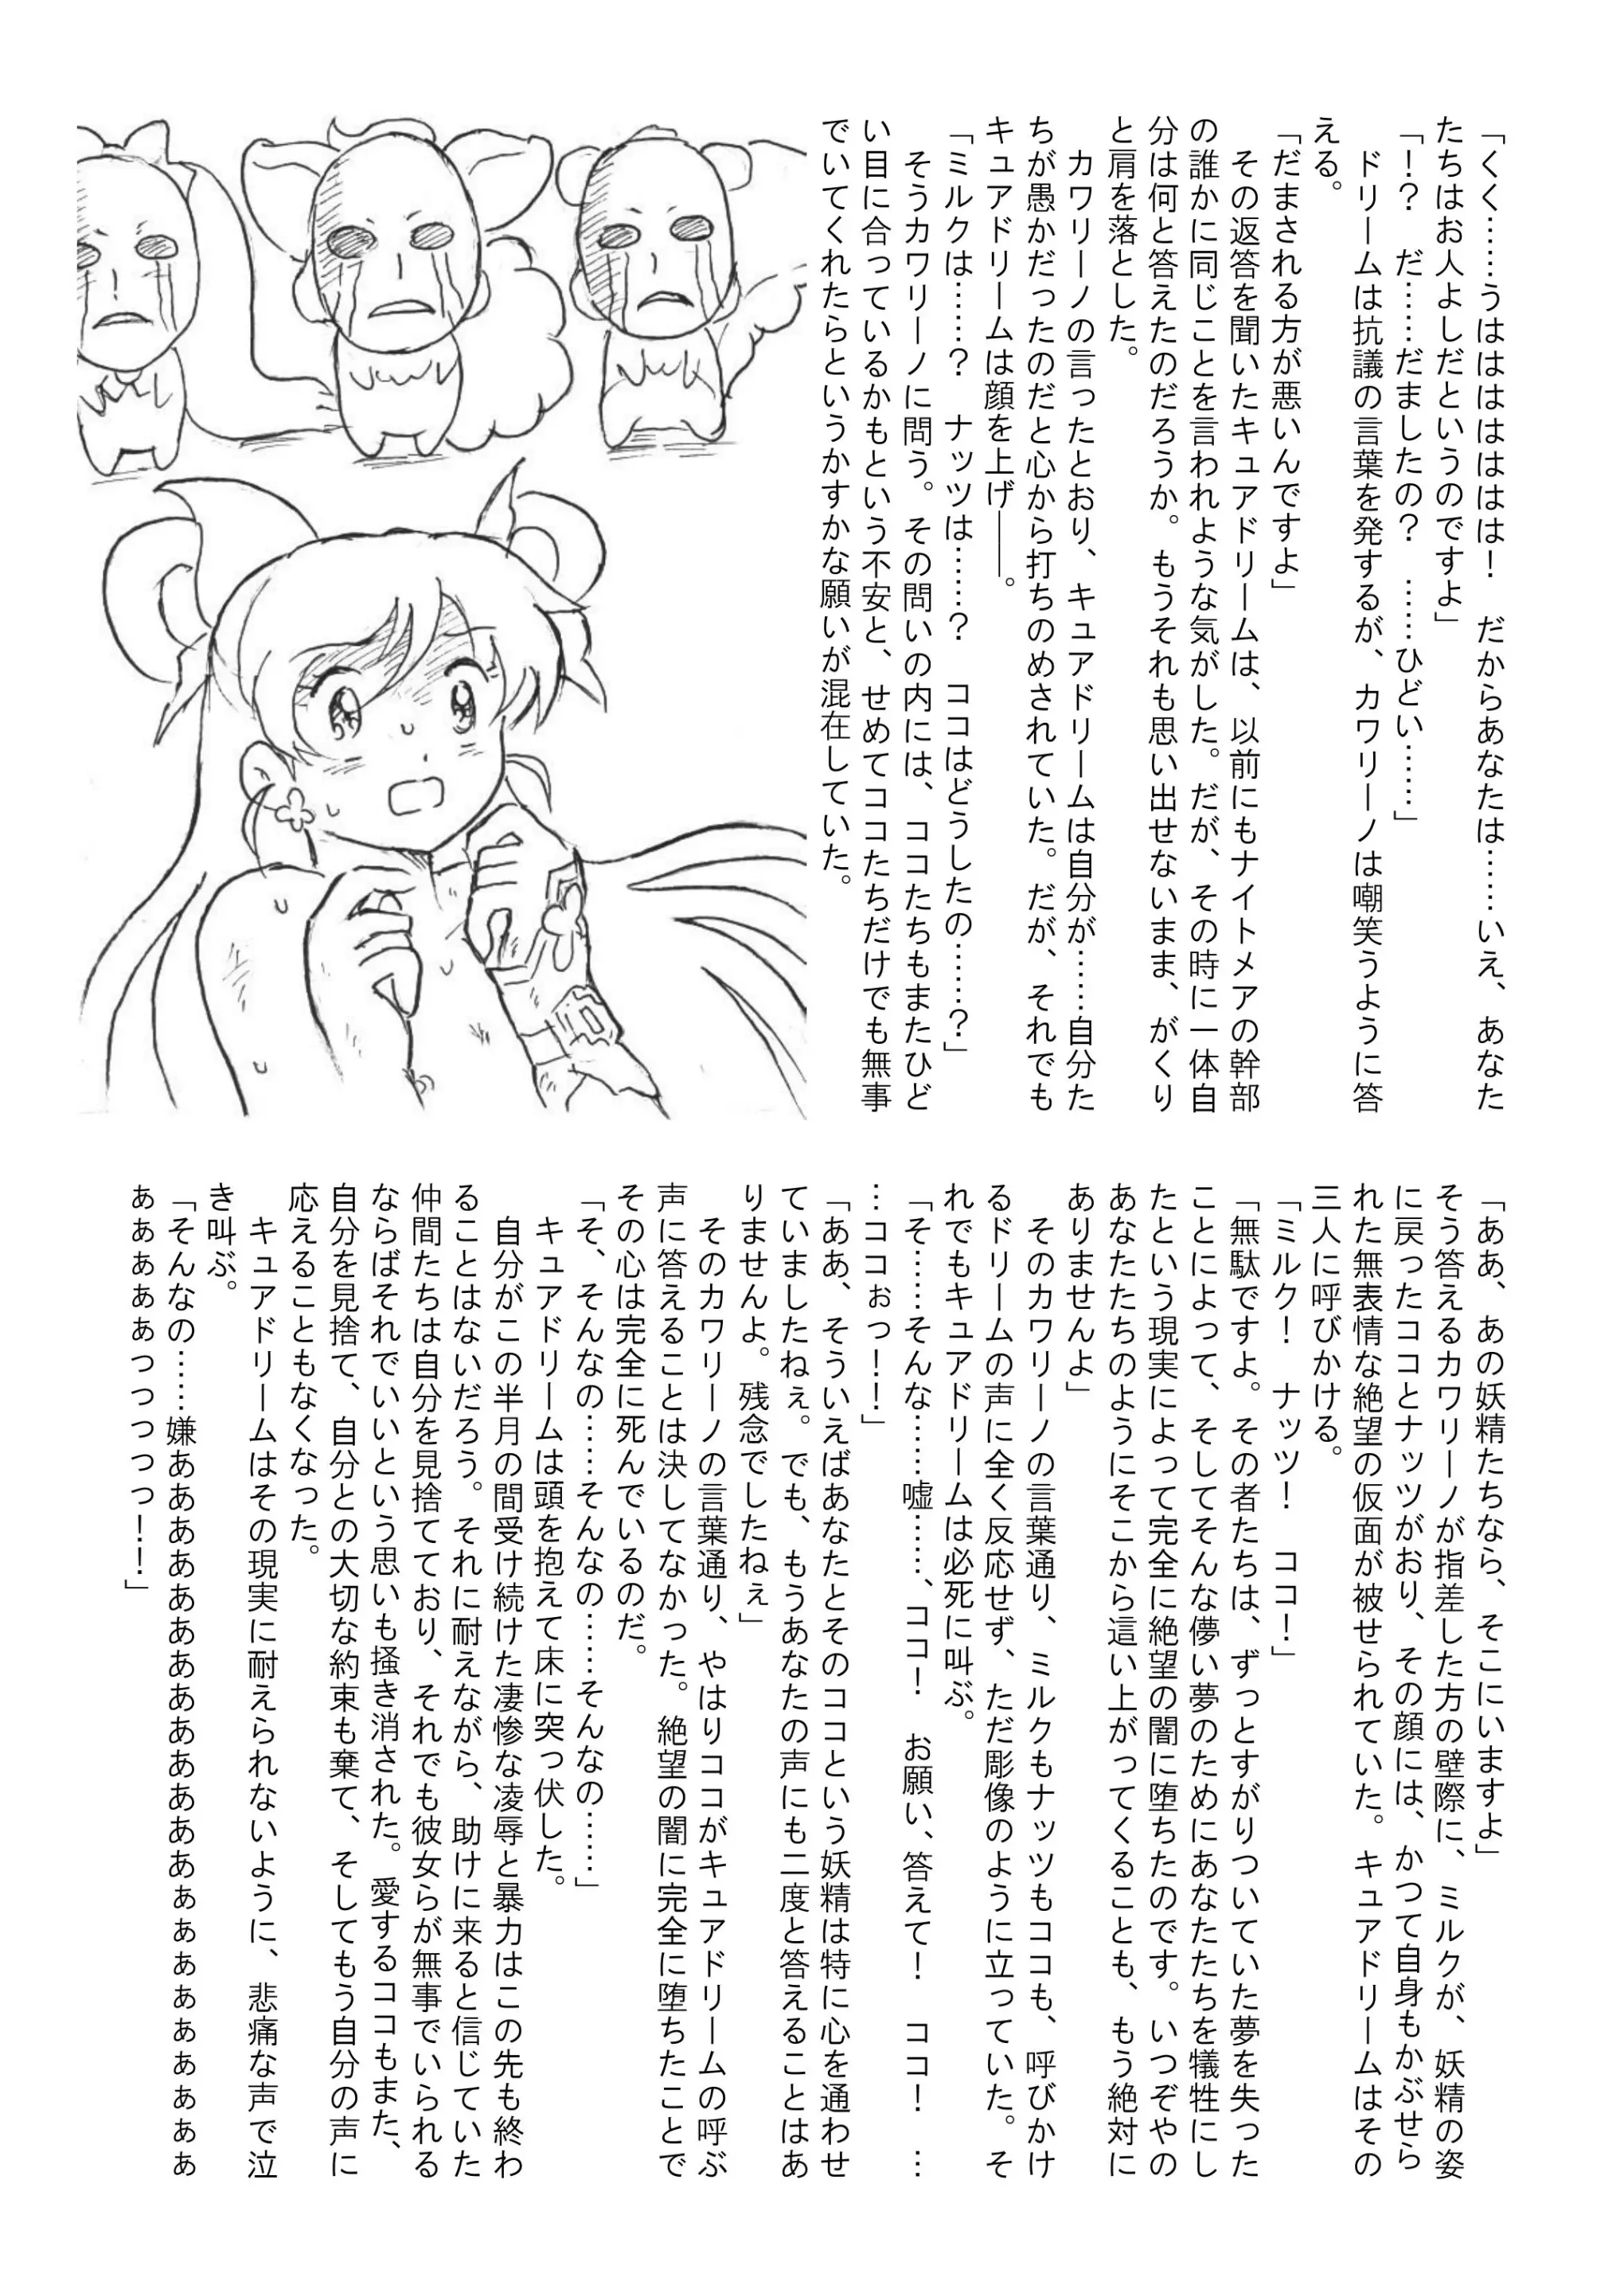 「くく……うはははははははは！　だからあなたは……いえ、あなた
たちはお人よしだというのですよ」
「！？　だ……だましたの？　……ひどい……」
　ドリームは抗議の言葉を発するが、カワリーノは嘲笑うように答
える。
「だまされる方が悪いんですよ」
　その返答を聞いたキュアドリームは、以前にもナイトメアの幹部
の誰かに同じことを言われような気がした。だが、その時に一体自
分は何と答えたのだろうか。もうそれも思い出せないまま、がくり
と肩を落とした。
　カワリーノの言ったとおり、キュアドリームは自分が……自分た
ちが愚かだったのだと心から打ちのめされていた。だが、それでも
キュアドリームは顔を上げ――。
「ミルクは……？　ナッツは……？　ココはどうしたの……？」
　そうカワリーノに問う。その問いの内には、ココたちもまたひど
い目に合っているかもという不安と、せめてココたちだけでも無事
でいてくれたらというかすかな願いが混在していた。
「ああ、あの妖精たちなら、そこにいますよ」
そう答えるカワリーノが指差した方の壁際に、ミルクが、妖精の姿
に戻ったココとナッツがおり、その顔には、かつて自身もかぶせら
れた無表情な絶望の仮面が被せられていた。キュアドリームはその
三人に呼びかける。
「ミルク！　ナッツ！　ココ！」
「無駄ですよ。その者たちは、ずっとすがりついていた夢を失った
ことによって、そしてそんな儚い夢のためにあなたたちを犠牲にし
たという現実によって完全に絶望の闇に堕ちたのです。いつぞやの
あなたたちのようにそこから這い上がってくることも、もう絶対に
ありませんよ」
　そのカワリーノの言葉通り、ミルクもナッツもココも、呼びかけ
るドリームの声に全く反応せず、ただ彫像のように立っていた。そ
れでもキュアドリームは必死に叫ぶ。
「そ……そんな……嘘……、ココ！　お願い、答えて！　ココ！　…
…ココぉっ！！」
「ああ、そういえばあなたとそのココという妖精は特に心を通わせ
ていましたねぇ。でも、もうあなたの声にも二度と答えることはあ
りませんよ。残念でしたねぇ」
　そのカワリーノの言葉通り、やはりココがキュアドリームの呼ぶ
声に答えることは決してなかった。絶望の闇に完全に堕ちたことで
その心は完全に死んでいるのだ。
「そ、そんなの……そんなの……そんなの……」
　キュアドリームは頭を抱えて床に突っ伏した。
　自分がこの半月の間受け続けた凄惨な凌辱と暴力はこの先も終わ
ることはないだろう。それに耐えながら、助けに来ると信じていた
仲間たちは自分を見捨てており、それでも彼女らが無事でいられる
ならばそれでいいという思いも掻き消された。愛するココもまた、
自分を見捨て、自分との大切な約束も棄て、そしてもう自分の声に
応えることもなくなった。
　キュアドリームはその現実に耐えられないように、悲痛な声で泣
き叫ぶ。
「そんなの……嫌あああああああああああああぁぁぁぁぁぁぁぁぁ
ぁぁぁぁぁっっっっっっ！！」